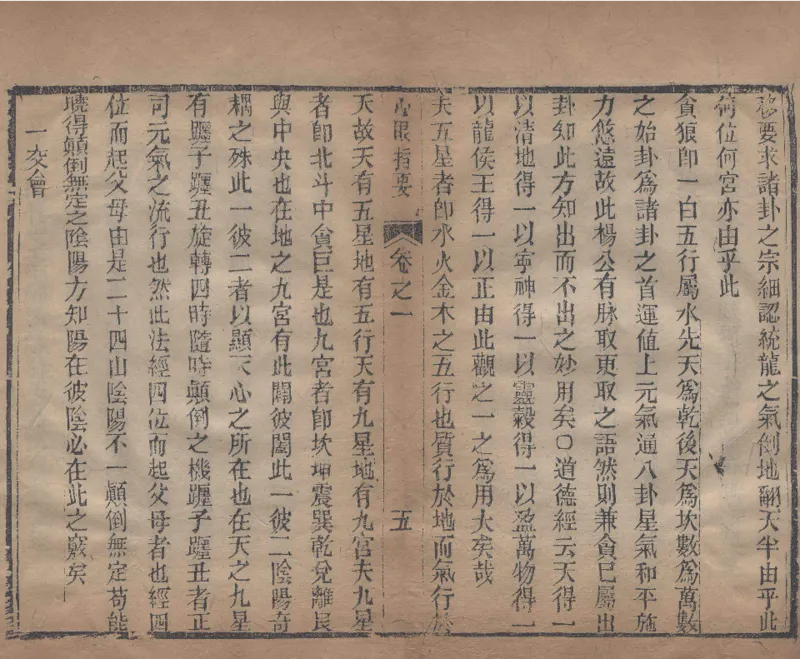 要求諸卦之宗細認統龍之氣倒地翻天半由乎此
何位何宮亦由乎此
貪狼即一白五行屬水先天爲乾後天爲坎數爲萬數
之始卦爲諸卦之首運值上元氣通八卦星氣和平施
力悠遠故此楊公有脉取更取之語然則兼貪巳屬出
卦知此方知出而不出之妙用矣〇道德經云天得一
以清地得一以寧神得一以靈榖得一以盈萬物得一
以龍侯王得一以正由此觀之一之爲用大矣哉
夫五星者即水火金木之五行也質行於地而氣行於
心眼指要 卷之一 五
天故天有五星地有五行天有九星地有九宮夫九星
者即北斗中貪巨是也九宮者即坎坤震巽乾兌離艮
與中央也在地之九宮有此闔彼闔此一彼二陰陽奇
耦之殊此一彼二者以顯天心之所在也在天之九星
有躔子躔丑旋轉四時隨時顛倒之機躔子躔丑者正
司元氣之流行也然此法經四位而起父母者也經四
位而起父母由是二十四山陰陽不一顛倒無定苟能
曉得顛倒無定之陰陽方知陽在彼陰必在此之竅矣
一交會